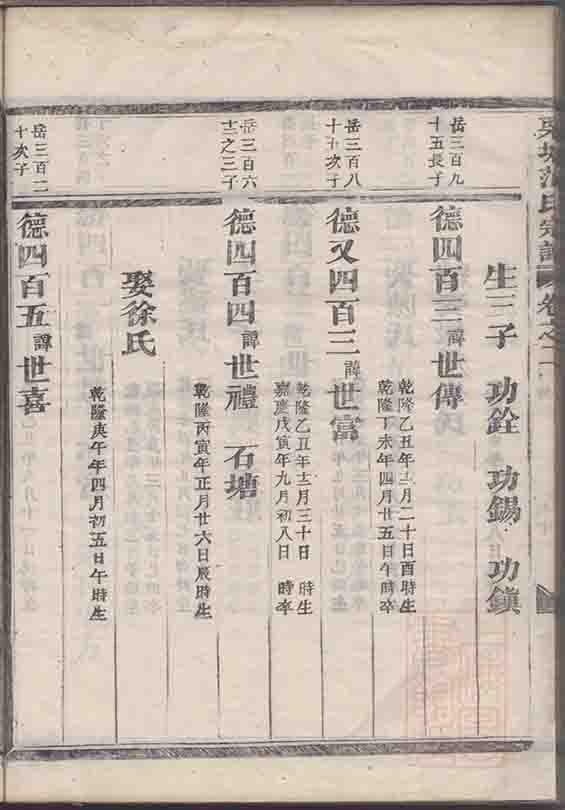 氏宗譜 卷之二
生三子 功銓 功錫 功鎮
岳三百九
十五長子
德四百三諱世傳
乾隆乙丑年十二月二十日酉時生
乾隆丁未年四月廿五日午時卒
岳三百八
十十次子
德又四百三諱世富
乾隆乙丑年十二月三十日 時生
嘉慶戊寅年九月初八日 時卒
岳三百六
十二之三子
德四百四諱世禮 石塘
乾隆丙寅年正月廿六日辰時生
娶徐氏
乾隆庚午年四月初五日午時生
岳三百二
十次子
德四百五諱世喜